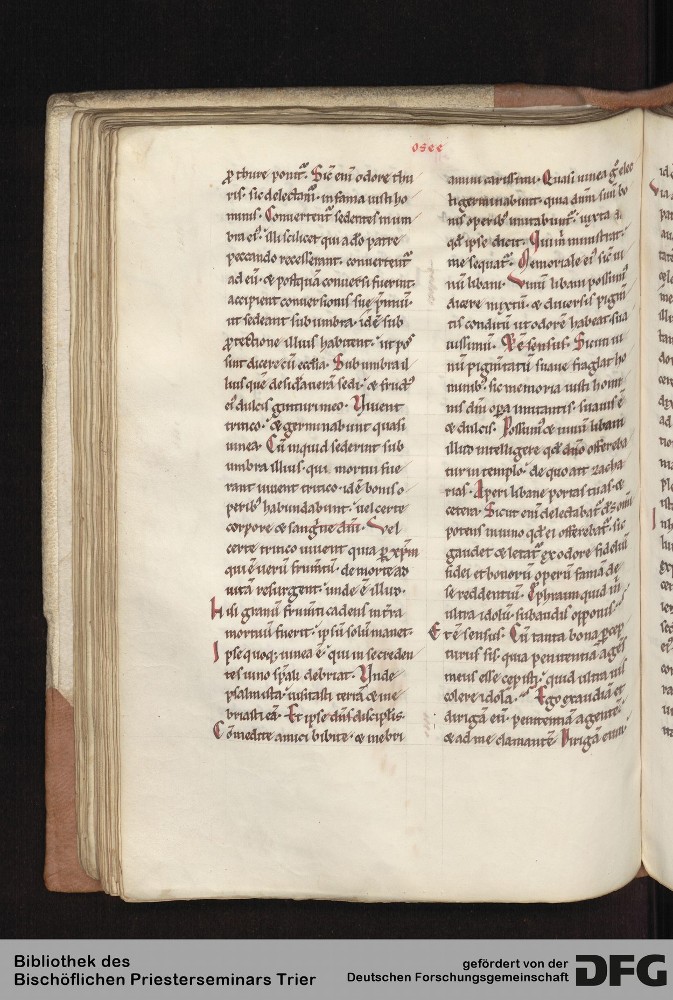 osee
ꝓ thure ponit᷑. Sic̄ eni᷑ odore thu
ris. sic delectam᷑. in fama iusti ho
minis. Conuertent᷑ sedentes in um
bra ei᷒. illi scilicet qui a dō patre
peccando recesserant. conuertent᷑
ad eū. & postquā conuersi fuerint.
accipient conuersionis sue p̄miū.
ut sedeant sub umbra. id ē sub
ꝓtectione illius habitent. ut pos
sint dicere cū ecctā. Sub umbra il
lius quē desid̓auerā sedi. & fruct᷒
ei᷒ dulcis gutturi meo. Viuent
tritico. & germinabunt quasi
uinea. Cū inquid sederint sub
umbra illius. qui mortui fue
rant uiuent tritico. id ē bonis o
perib᷒ habundabunt. uel certe
corpore & sanguine dn̄i. Vel
certe tritico uiuent quia ꝑ xp̄m
qui ē uerū frum̄tū. de morte ad
uitā resurgent. unde ē illud.
Nisi granū frum̄ti cadens in t̄ra
mortuū fuerit. ipsū solū manet.
Ipse quoq; uinea ē. qui in se creden
tes uino sp̄ali debriat. Vnde
psalmista. uisitasti terrā & ine
briasti eā. Et ipse dn̄s discipłis.
Cōmedite amici bibite. & inebri
amini carissimi. Quasi uinea g̊ elec
ti germinabunt. quia dūm sui bo
nis operib᷒ imitabunt᷑. iuxta
qđ ipse dicit. Qui m̄ ministrat.
me sequat᷑. Memoriale ei᷒ sic̄ ui
nū libani. Vinū libani possum᷒
dicere mixtū. & diuersis pigm̄
tis conditū ut odorē habeat sua
uissimū. Et ē sensus. Sicut ui
nū pigm̄tatū suaue fraglat ho
minib᷒. sic memoria iusti homi
nis dūm opa imitantis. suauis ē
& dulcis. Possum᷒ & uinū libani
illud intelligere qđ dn̄o offereba
tur in templo. de quo ait zacha
rias. Aperi libane portas tuas. &
cetera. Sicut eni᷑ delectabat᷑ dś omi
potens in uino qđ ei offerebat᷑. sic
gaudet & letat᷑ ex odore fideliū
fidei et bonorū operū famā de
se reddentiū. Ephraim quid m̄
ultra idola. subaudis opponis.
Et ē sensus. Cū tanta bona ꝑcep
turus sis. quia penitentiā agēs
meus esse cepisti. quid ultra uis
colere idola. Ego exaudiā et
dirigā eū. penitentiā agentē.
& ad me clamantē. Dirigā eum
Bibliothek des
Bischöflichen Priesterseminars Trier
gefördert von der
Deutschen Forschungsgemeinschaft
DFG